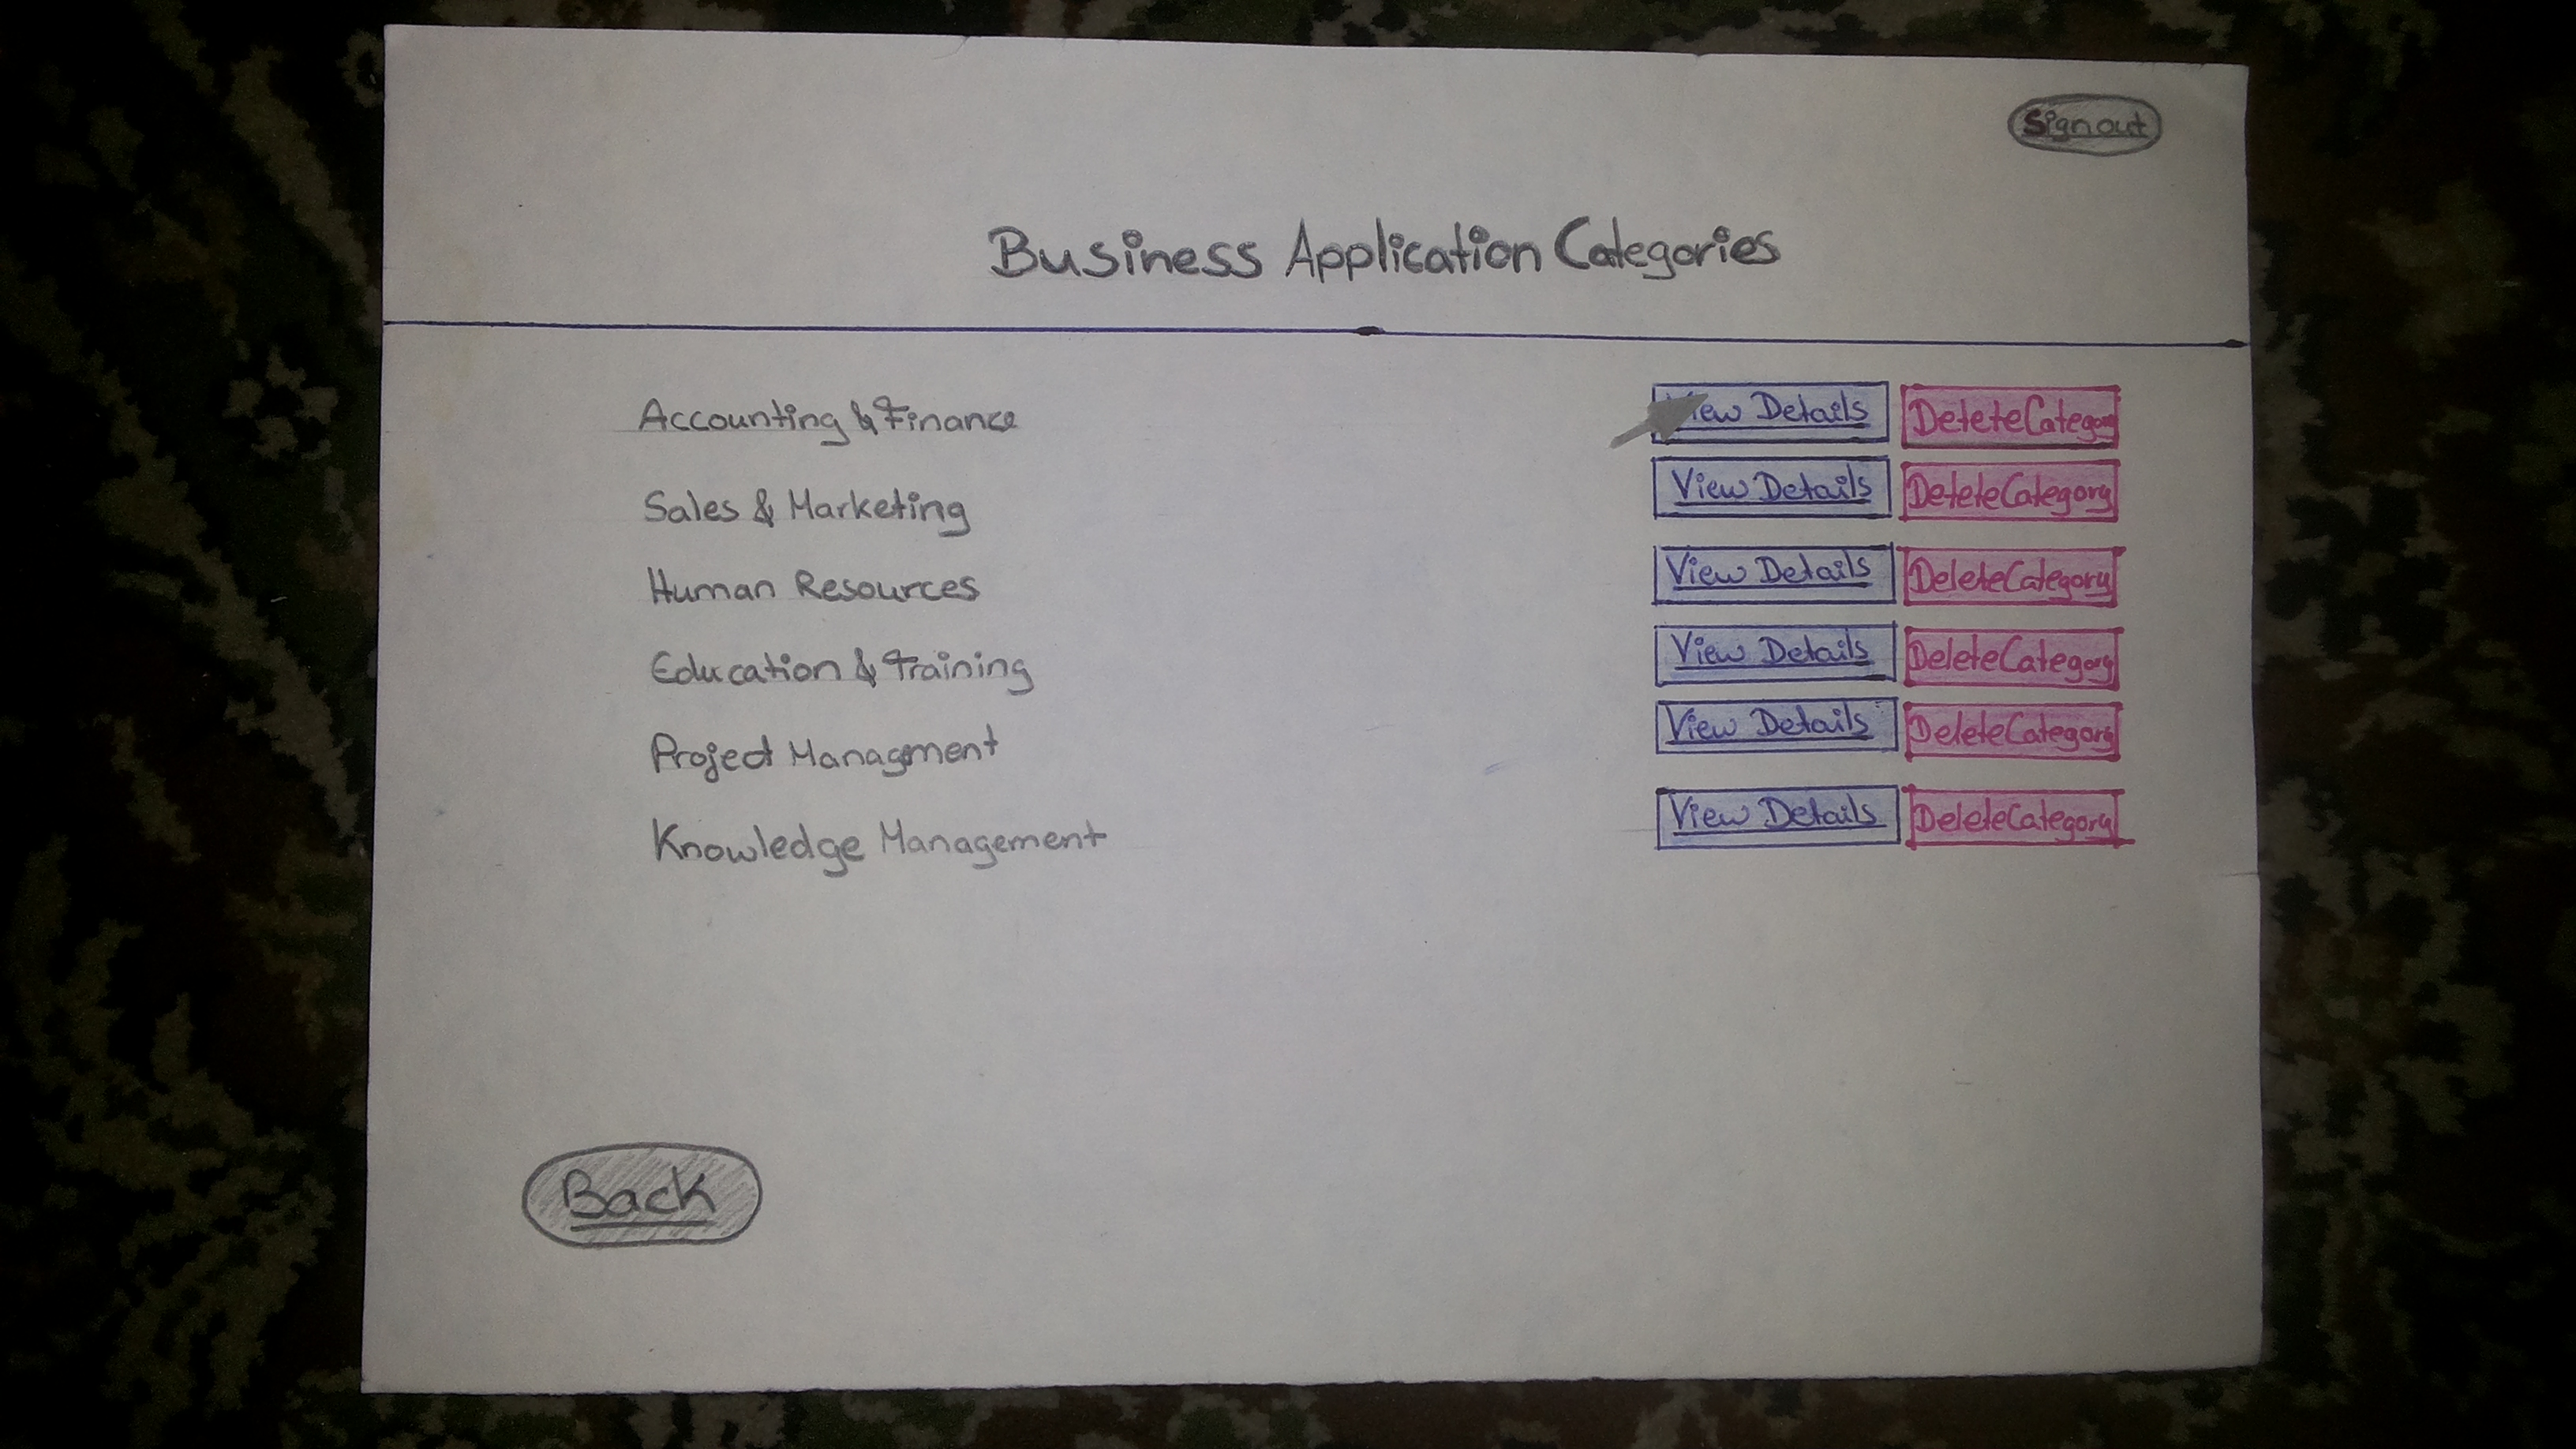 Signout
Business Application Categories
Accounting & Finance View Details Delete Category
Sales & Marketing View Details Delete Category
Human Resources View Details Delete Category
Education & Training View Details Delete Category
Project Managment View Details Delete Category
Knowledge Management View Details Delete Category
Back